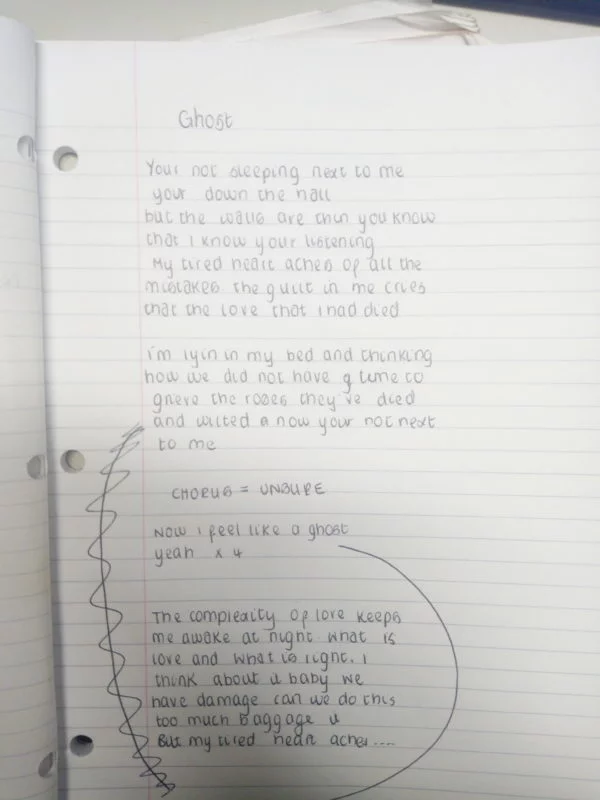 Ghost
Your not sleeping next to me
your down the hall
but the walls are thin you know
that I know your listening
My tired heart aches of all the
mistakes the guilt in me cries
that the love that I had died
i'm lyin in my bed and thinking
how we did not have a time to
grieve the roses they've died
and wilted a now your not next
to me
CHORUS = UNSURE
Now i feel like a ghost
yeah x 4
The complexity of love keeps
me awake at night what is
love and what is right. I
think about u baby we
have damage can we do this
too much baggage u
But my tired heart aches....